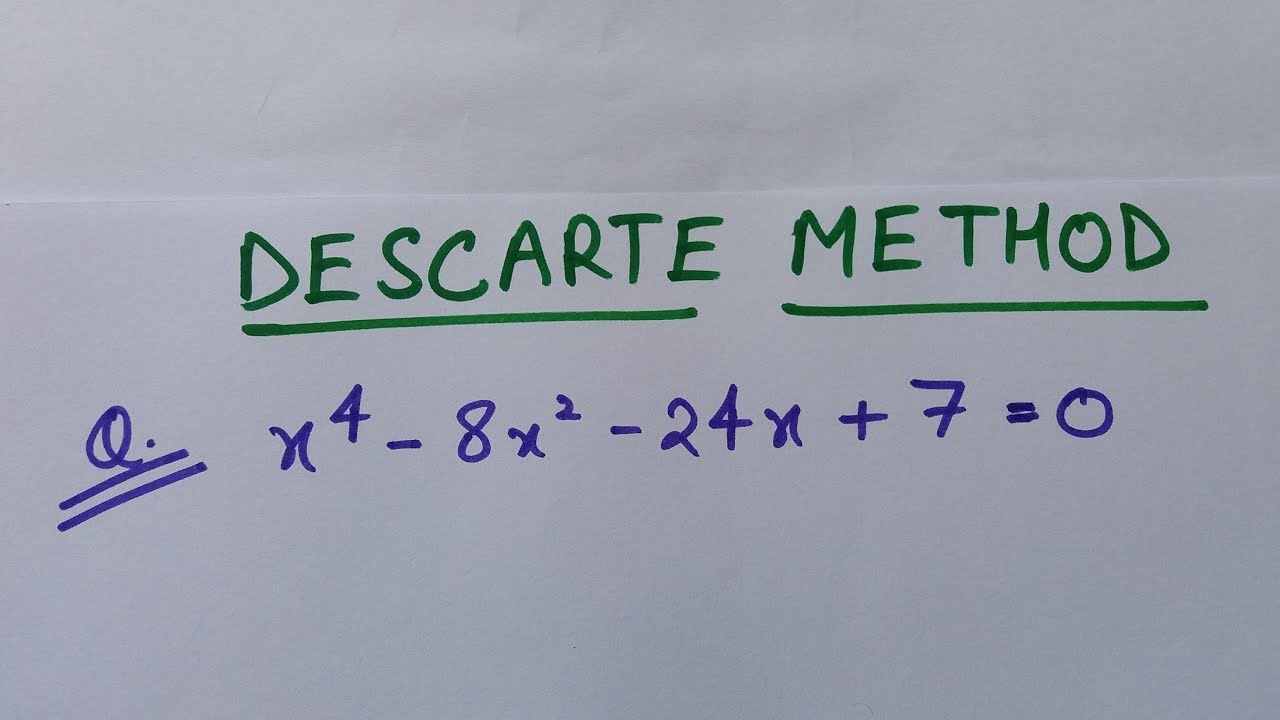 DESCARTE METHOD
Q. x⁴ - 8x² - 24x + 7 = 0